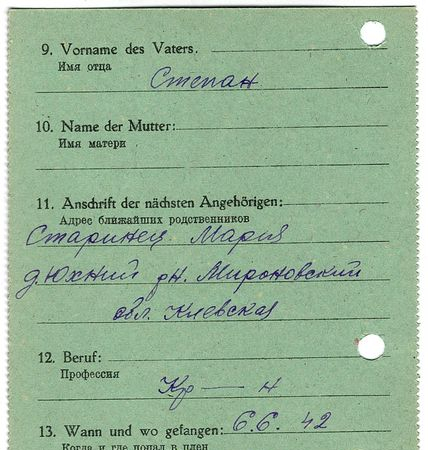 9. Vorname des Vaters.
Имя отца
Степан
10. Name der Mutter:
Имя матери
11. Anschrift der nächsten Angehörigen:
Адрес ближайших родственников
Старинец Мария
д. Юхний рн. Мироновский
обл. Киевская
12. Beruf:
Профессия
Кр — н
13. Wann und wo gefangen: 6.6. 42
Когда и где попал в плен